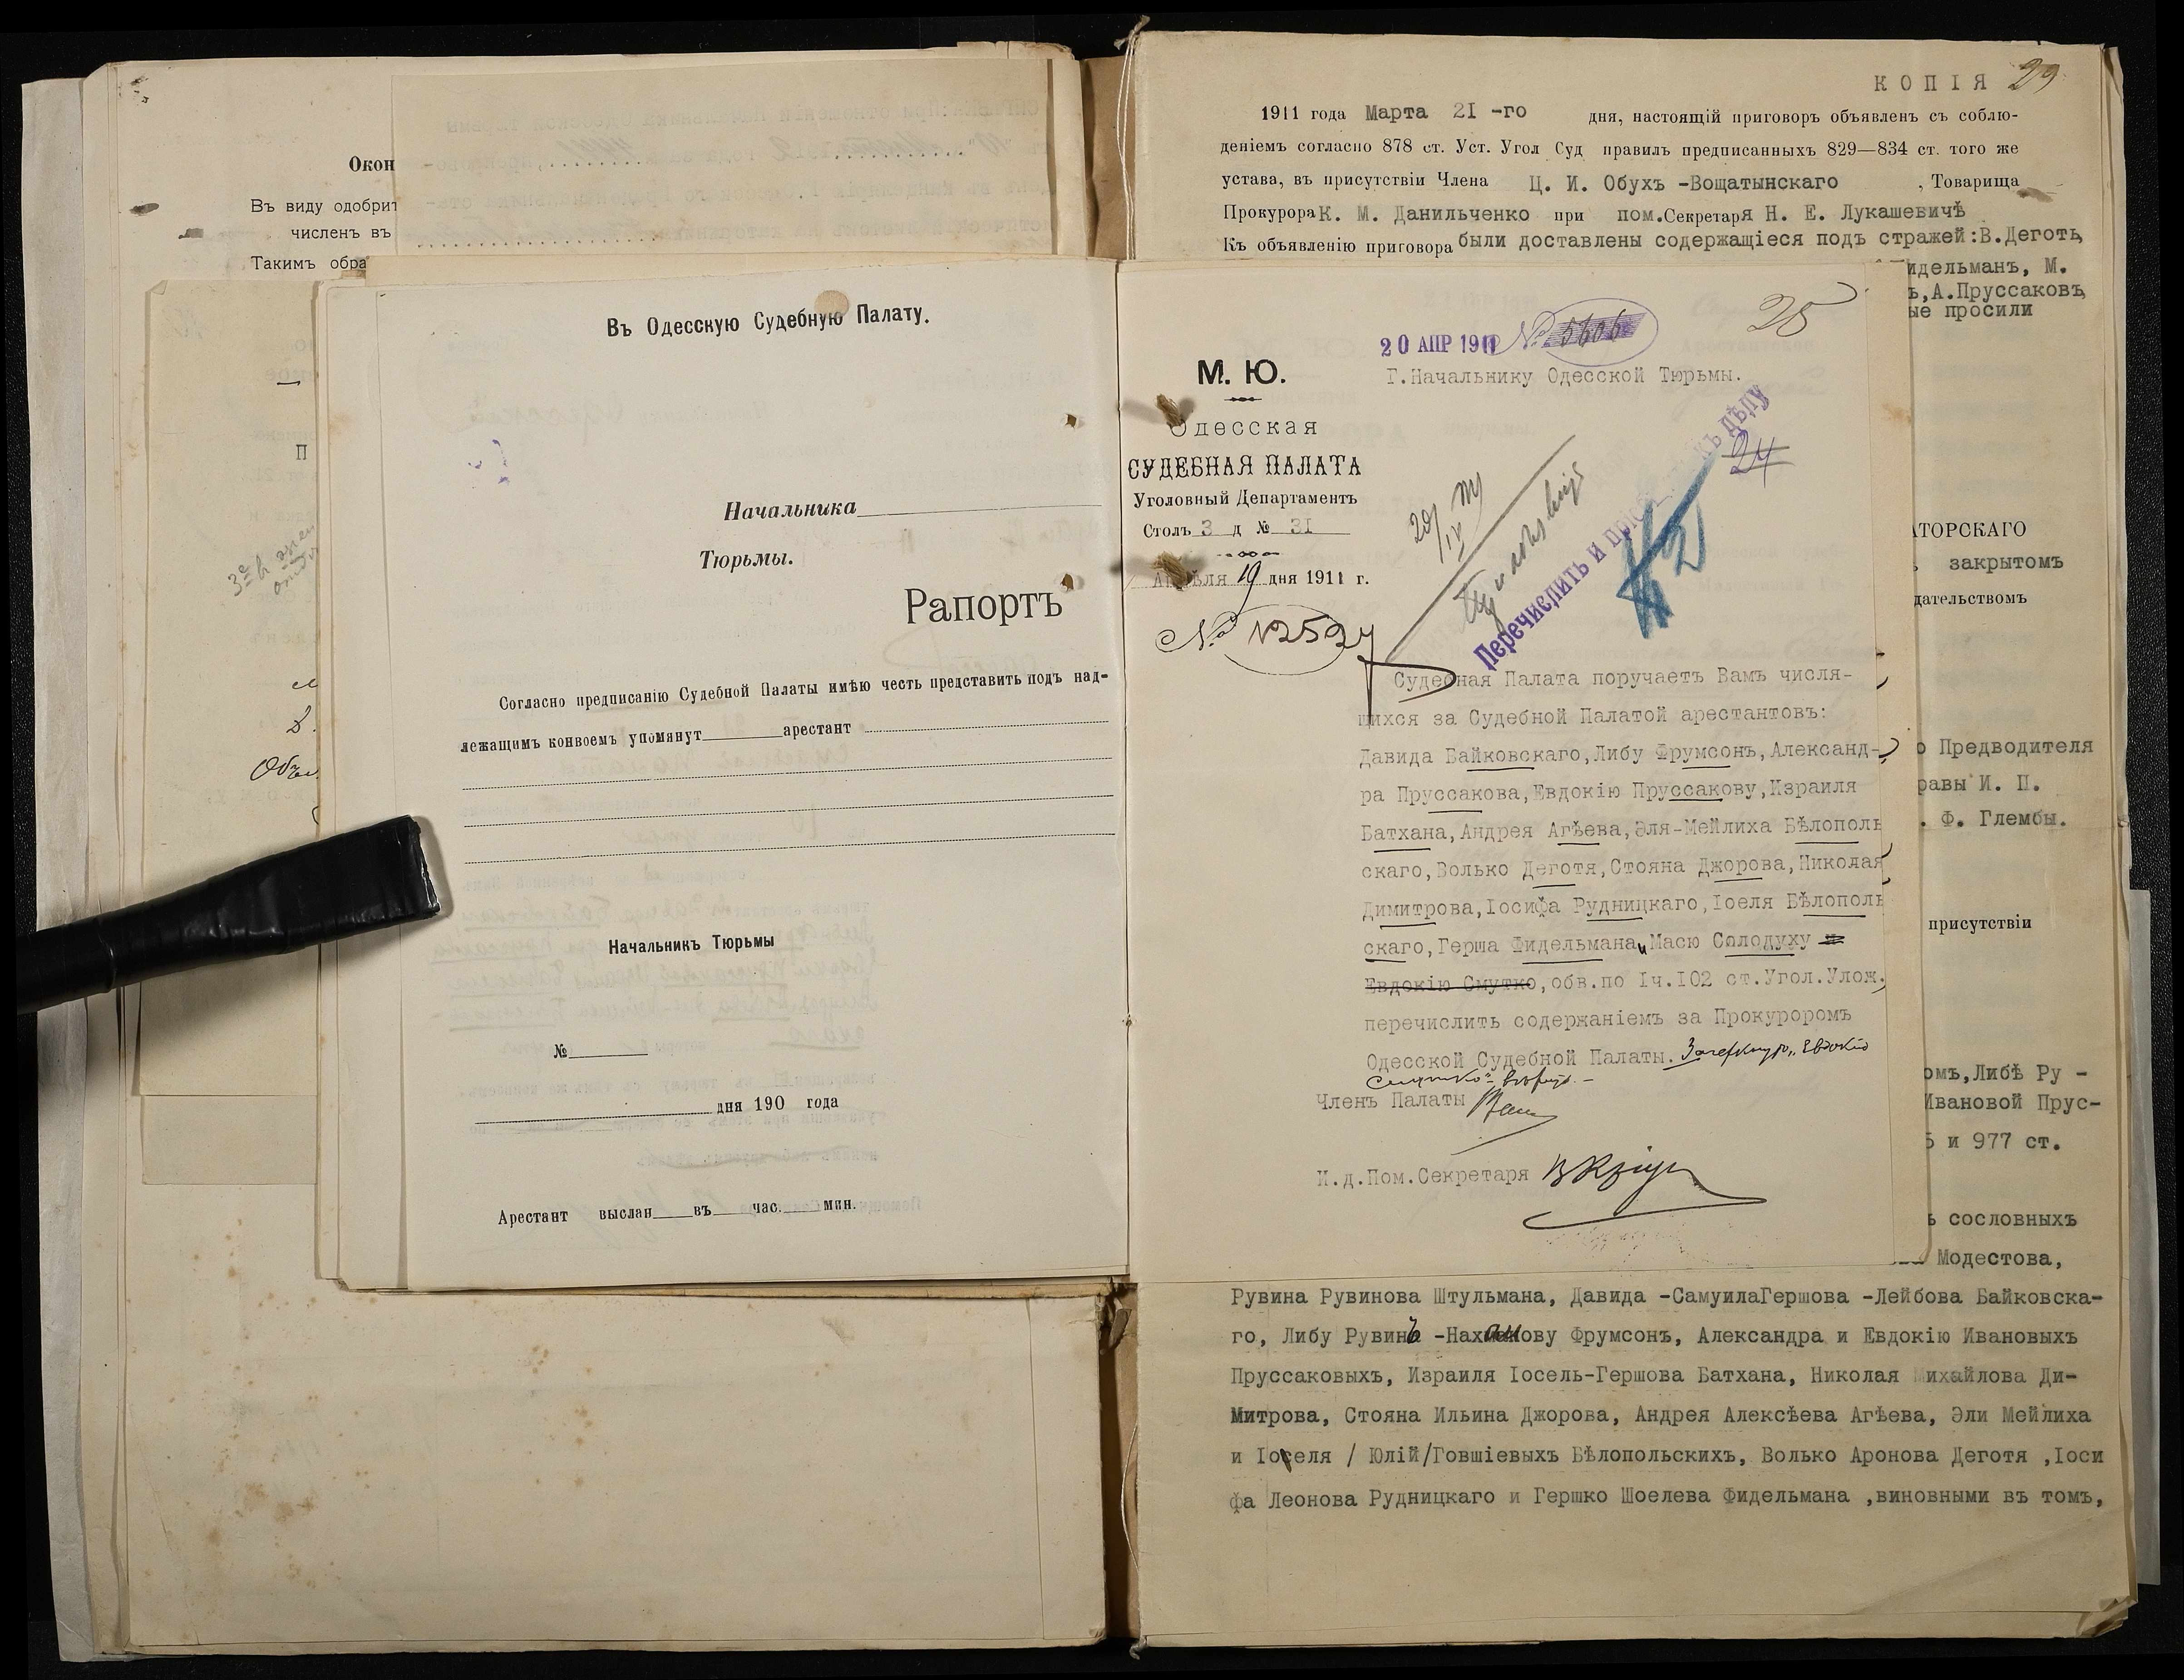 Окон
Въ виду одобрит
численъ въ
Такимъ обра
П
Объ
Въ Одесскую Судебную Палату.
Начальника
Тюрьмы.
Рапортъ
Согласно предписанію Судебной Палаты имѣю честь представить подъ над-
лежащимъ конвоемъ упомянут арестант
Начальникъ Тюрьмы
№
дня 190 года
Арестант выслан въ час. мин.
КОПІЯ 29
1911 года Марта 21 -го дня, настоящій приговоръ объявленъ съ соблю-
деніемъ согласно 878 ст. Уст. Угол Суд правилъ предписанныхъ 829—834 ст. того же
устава, въ присутствіи Члена Ц. И. Обухъ -Вощатынскаго , Товарища
Прокурора К. М. Данильченко при пом.Секретаря Н. Е. Лукашевичѣ
Къ объявленію приговора были доставлены содержащіеся подъ стражей:В.Деготь,
идельманъ, М.
ъ,А.Пруссаковъ,
ые просили
20 АПР 1911 № 5606
25
М. Ю.
Г.Начальнику Одесской Тюрьмы.
Одесская
СУДЕБНАЯ ПАЛАТА
Уголовный Департаментъ
Столъ 3 д № 31
Апрѣля 19 дня 1911 г.
№ 12527
24
20/IV
Перечислить и дѣлу
Судебная Палата поручаетъ Вамъ числя-
щихся за Судебной Палатой арестантовъ:
Давида Байковскаго,Либу Фрумсонъ,Александ-
ра Пруссакова,Евдокію Пруссакову,Израиля
Батхана,Андрея Агѣева,Эля-Мейлиха Бѣлополь
скаго,Волько Деготя,Стояна Джорова,Николая
Димитрова,Іосифа Рудницкаго,Іоеля Бѣлополь
скаго,Герша Фидельмана и Масю Солодуху и
Евдокію Смутко,обв.по 1ч.102 ст.Угол.Улож.,
перечислить содержаніемъ за Прокуроромъ
Одесской Судебной Палаты. Зачеркнуто „Евдокію
Смутко"
Членъ Палаты
И.д.Пом.Секретаря
АТОРСКАГО
закрытомъ
дательствомъ
о Предводителя
равы И. П.
. Ф. Глембы.
присутствіи
омъ,Либѣ Ру -
Ивановой Прус-
5 и 977 ст.
ъ сословныхъ
Модестова,
Рувина Рувинова Штульмана, Давида -СамуилаГершова -Лейбова Байковска-
го, Либу Рувинъ -Нахманову Фрумсонъ, Александра и Евдокію Ивановыхъ
Пруссаковыхъ, Израиля Іосель-Гершова Батхана, Николая Михайлова Ди-
митрова, Стояна Ильина Джорова, Андрея Алексѣева Агѣева, Эли Мейлиха
и Іоселя / Юлій/Говшіевыхъ Бѣлопольскихъ, Волько Аронова Деготя ,Іоси
фа Леонова Рудницкаго и Гершко Шоелева Фидельмана ,виновными въ томъ,